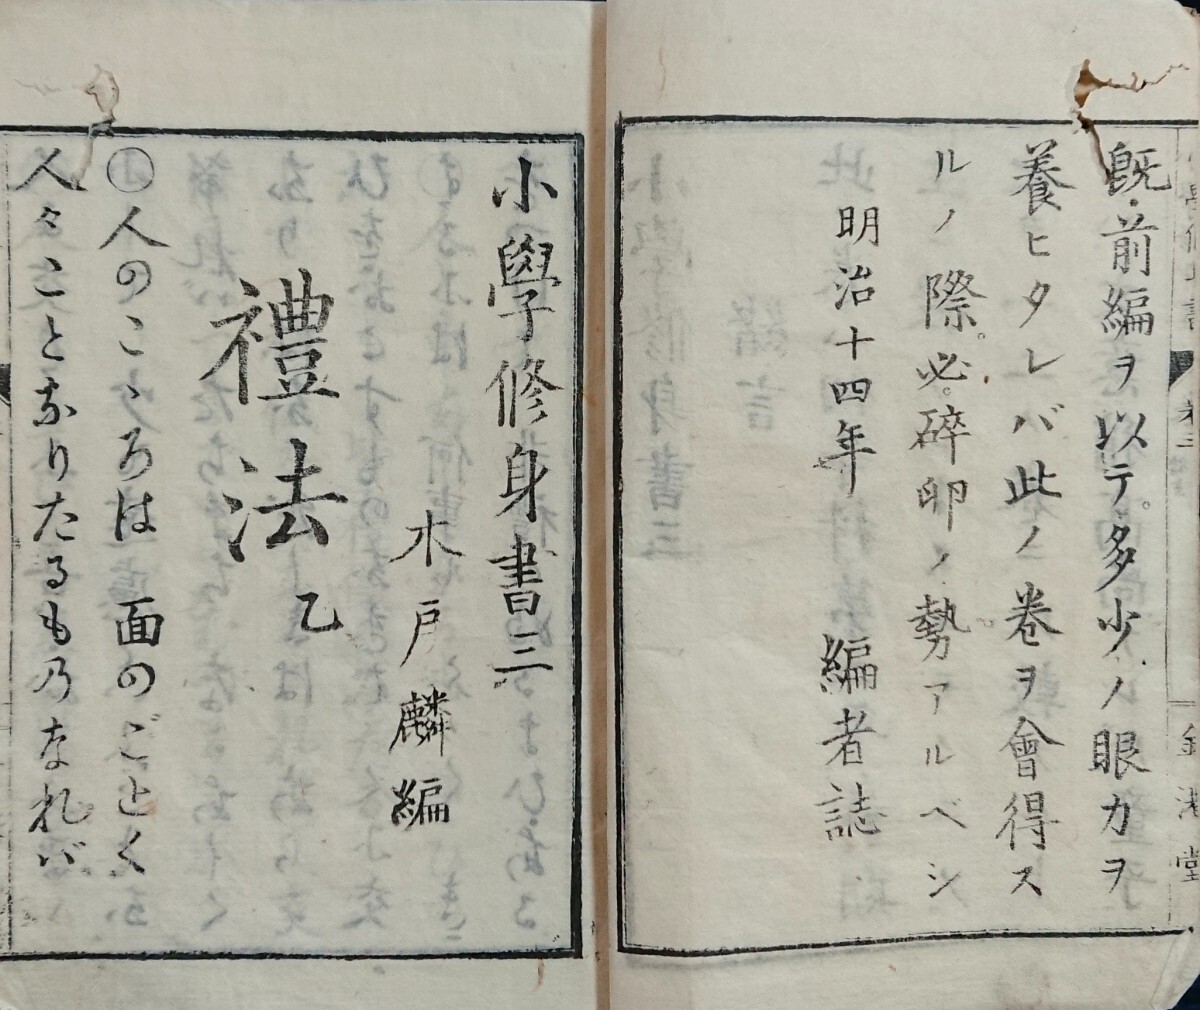 既前編ヲ以テ。多少ノ眼カヲ
養ヒタレバ此ノ卷ヲ會得ス
ルノ際。必碎卵ノ勢アルベシ
明治十四年　編者誌
小學修身書三
木戸麟編
禮法乙
人のこゝろは面のごとく
人々ことなりたるも乃なれバ